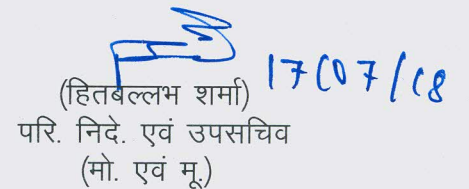 17/07/18
(हितबल्लभ शर्मा)
परि. निदे. एवं उपसचिव
(मो. एवं मू.)